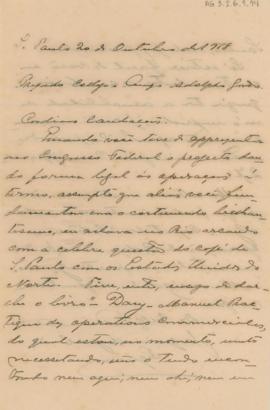 AG 3.2.6.1.14
S. Paulo 20 de Outubro de 1918
Presado Collega e Amigo Adolpho Gordo.
Cordiaes saudações.
Quando você teve de appresentar
ao Congresso Federal o projecto dan-
do forma legal ás operações á
termo, assumpto que aliás você fun-
damentou com o costumado brilhan-
tismo, eu achava no Rio
com a celebre questão do café de
S. Paulo com os Estados Unidos do
Norte. Tive, então, de dar-
lhe o livro - Dany - Manuel Pra-
tique des operations commerciales,
do qual estou, no momento, muito
necessitando, não o tendo encon-
trado nem aqui, nem ahi, nem em